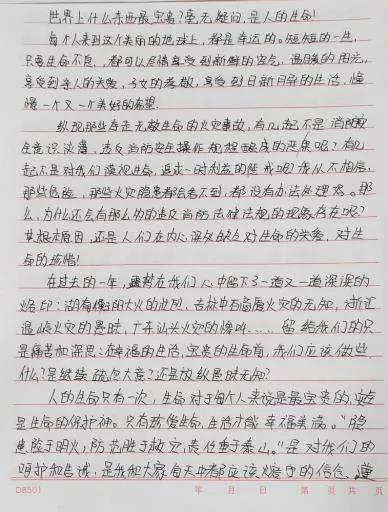 世界上什么东西最宝贵?毫无疑问,是人的生命!
每个人来到这个美丽的地球上,都是幸运的。短短的一生,
只要生命不息,都可以尽情享受到新鲜的空气,温暖的阳光,
享受到亲人的关爱,子女的孝敬,享受到日新月异的生活,憧
憬一个又一个美好的希望。
纵观那些吞走无数生命的火灾事故,有几起不是消防安
全意识淡薄,违反消防安全操作规程酿成的恶果呢?有几
起不是对我们漠视生命,追求一时利益的惩戒呢?我从不相信,
那些危险,那些火灾隐患都会看不到,都没有办法处理它。那
么,为什么还会有那么多的违反消防法律法规的现象存在呢?
其根本原因,还是人们在内心深处缺乏对生命的关爱,对生
命的珍惜!
在过去的一年,在我们心中留下了一道又一道深深的
烙印:湖南衡阳大火的壮烈,吉林中百商厦火灾的无知,浙江
温岭火灾的愚昧,广东汕头火灾的惨叫……留给我们的只
是痛苦和深思:在幸福的生活,宝贵的生命前,我们应该做些
什么?是继续疏忽大意?还是放纵愚昧无知?
人的生命只有一次,生命对于每个人来说是最宝贵的,安全
是生命的保护神。只有珍爱生命,生活才能幸福美满。“隐
患险于明火,防范胜于救灾,责任重于泰山。”是对我们的
呵护和告诫,是我和大家每天中都应该恪守的信念。
D8501 年 月 日 第 页 共 页